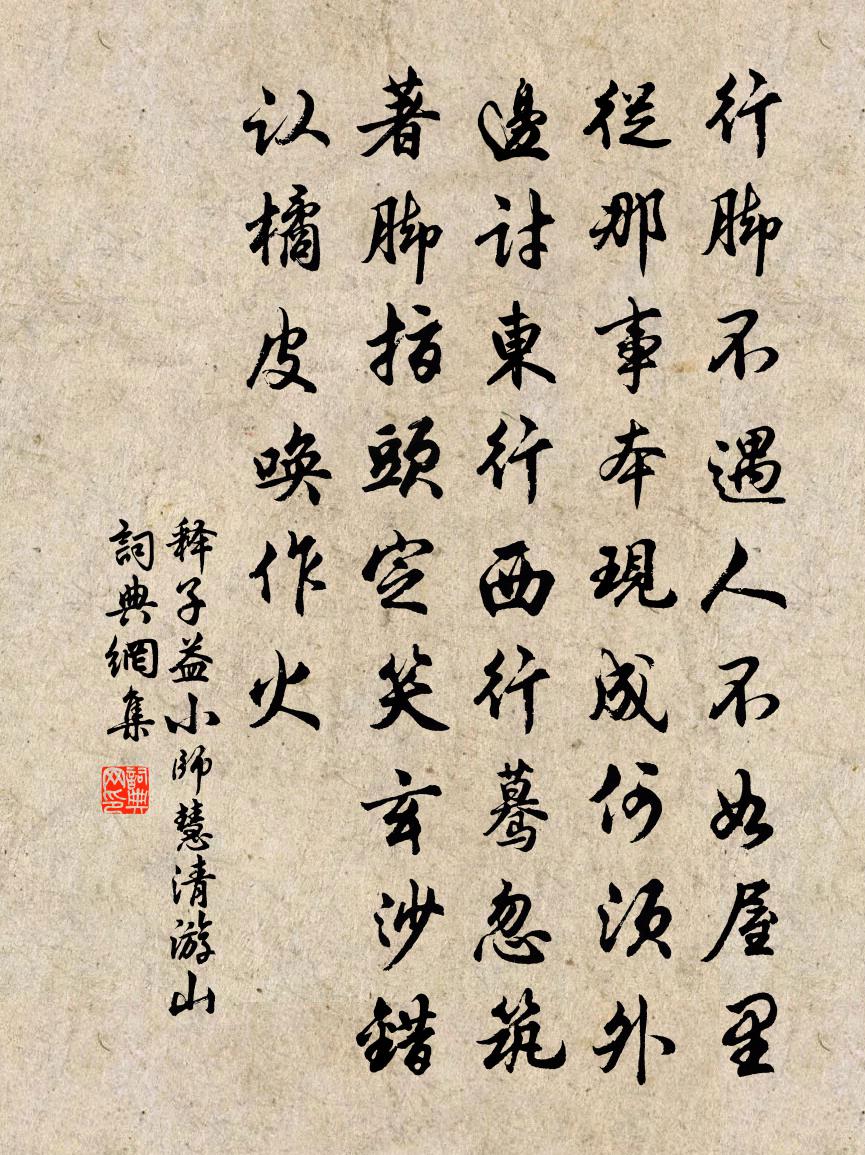 行脚不遇人不如屋里
從那事本現成何須外
邊討東行西行驀忽筑
著脚指頭定笑玄沙錯
认橘皮喚作火
释子益小師慧清游山
詞典網集
詞典网印